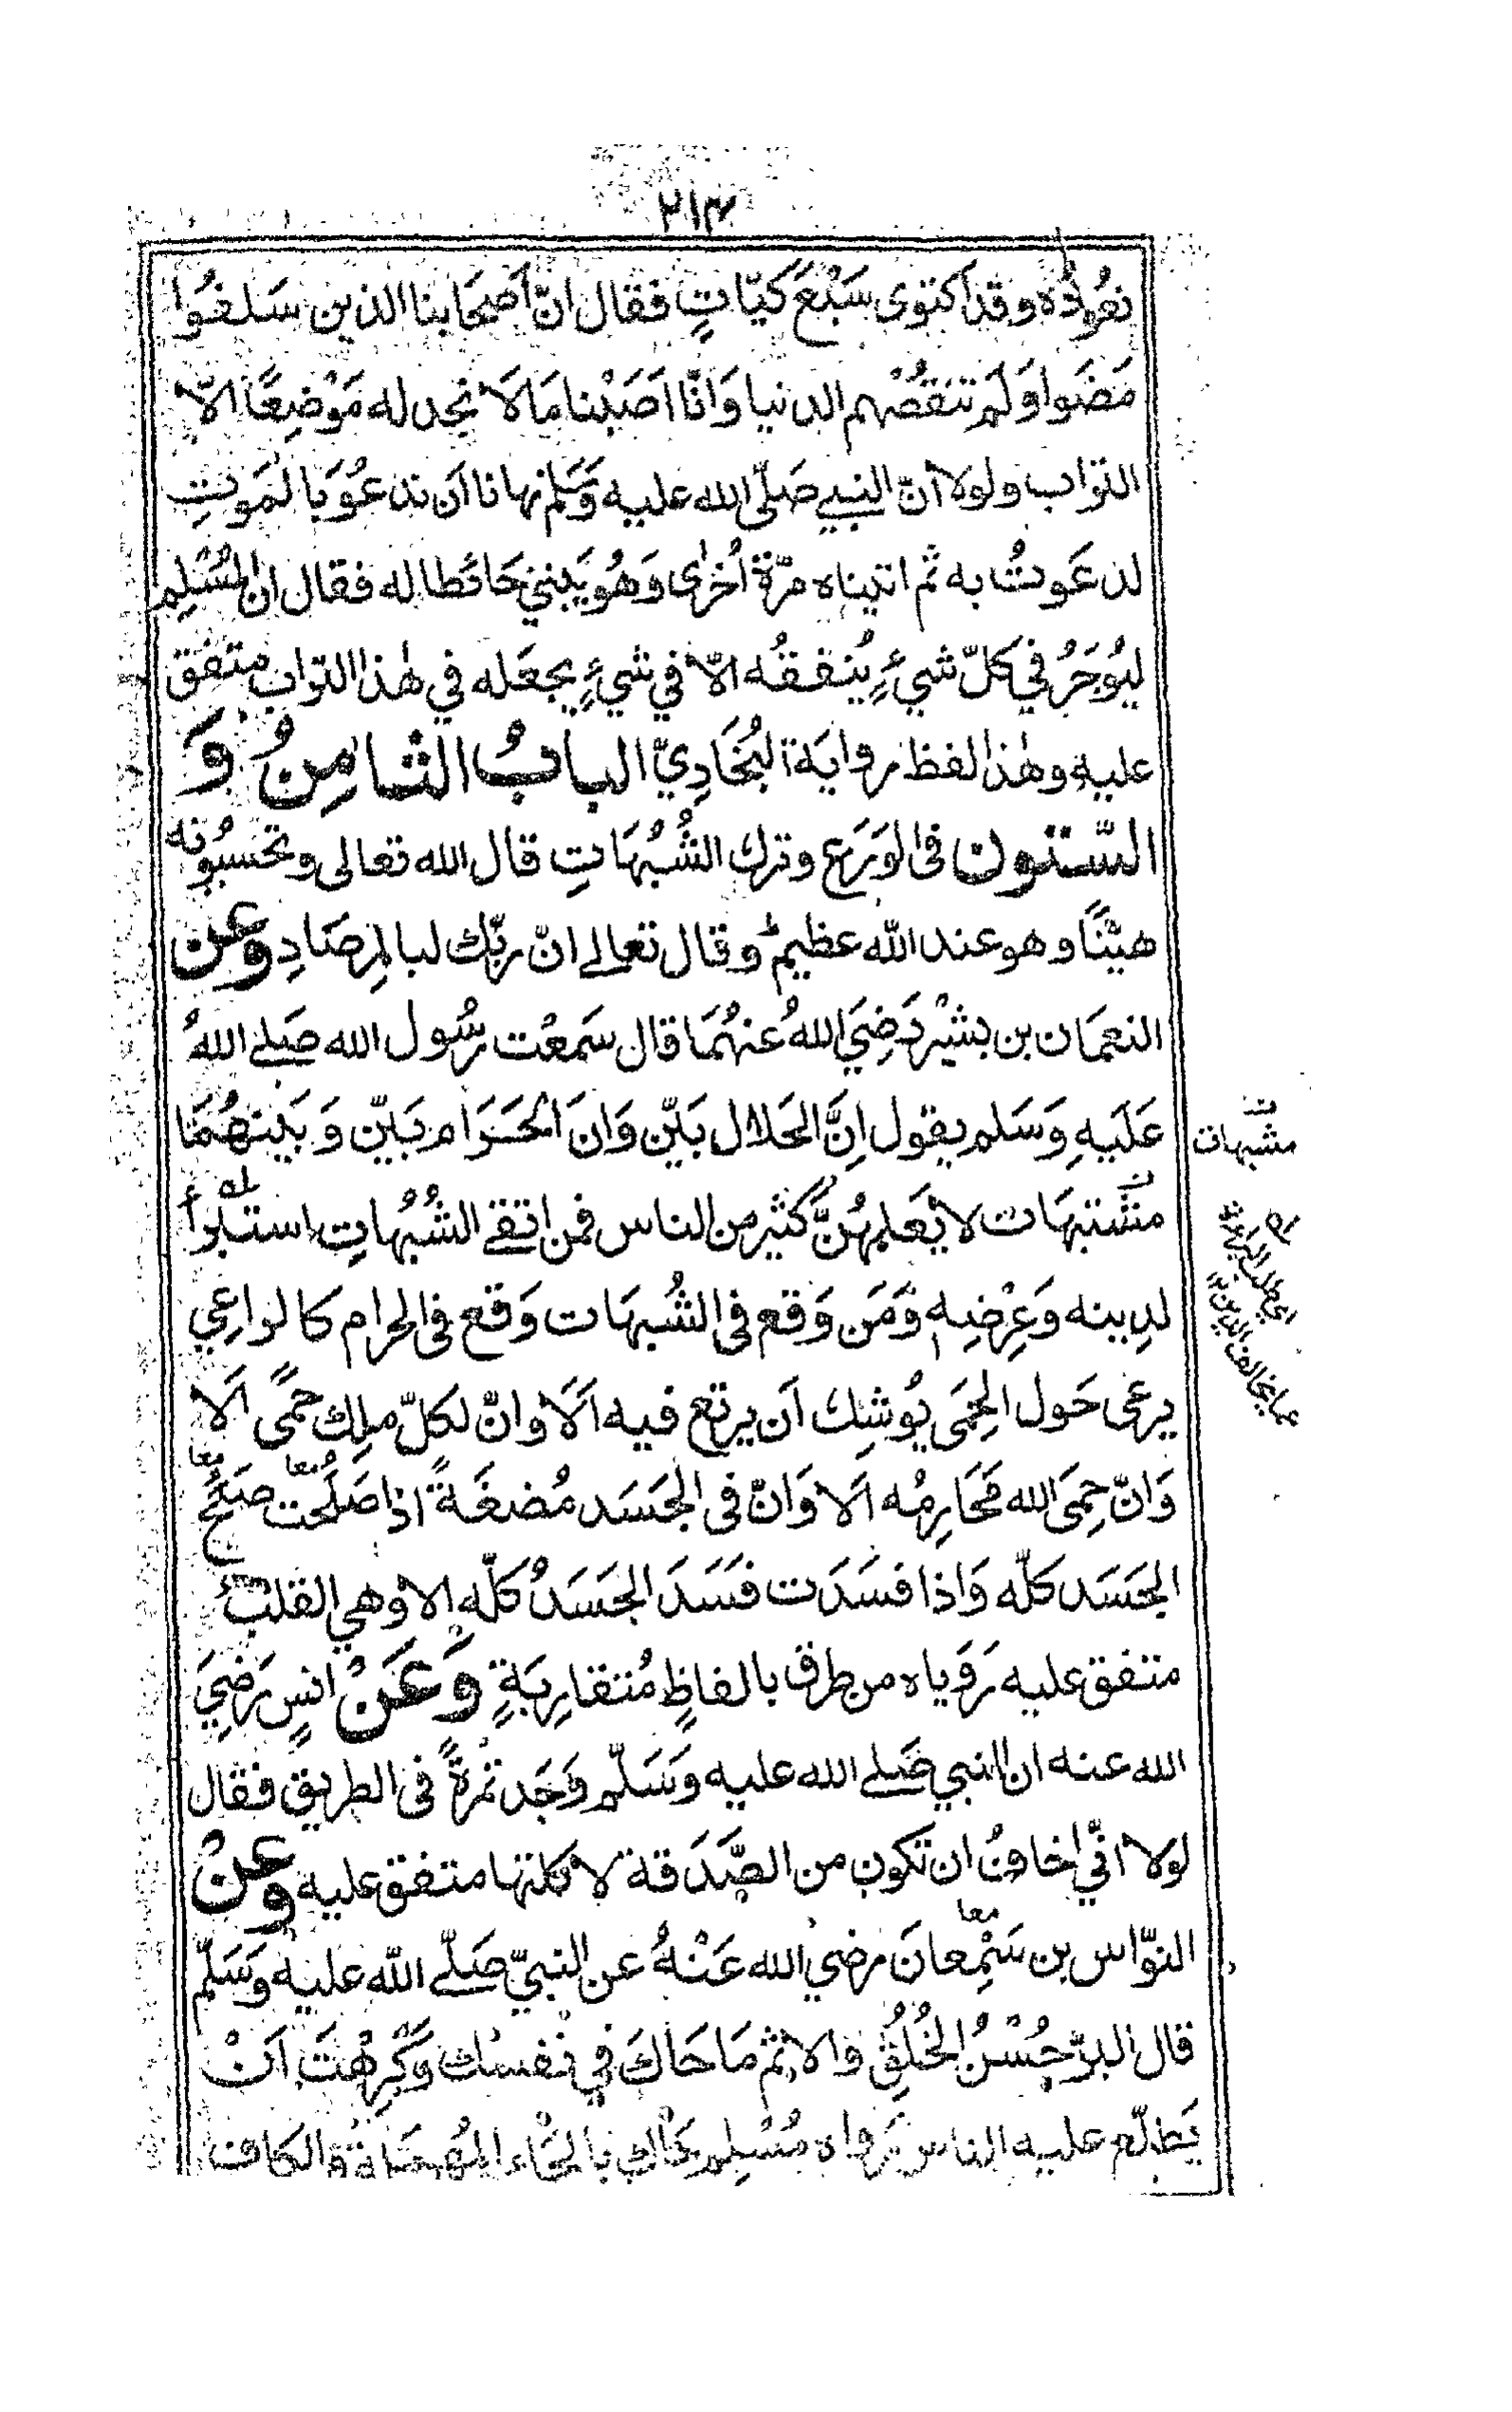 ٢١٤
نعُودُه وقد اكتوى سَبْعَ كيّاتٍ فقال انّ أصحَابنا الذين سَلفُوا
مَضَوا وَلَم تنقُصْهم الدنيا وَانّا اصَبْنا مَا لَا نجد له مَوْضِعًا الّا
التراب ولولا انّ النبي صَلّى الله عليه وَسَلم نهانا ان ندعُوَ بالمَوتِ
لدعَوتُ به ثم اتيناه مرّة اُخرٰى وَهُو يَبنى حَائطا له فقال ان المُسْلِم
ليُوجَرُ في كلّ شيءٍ يُنفقُه الّا في شيءٍ يجعَله في هٰذا التراب متفق
عليه وهٰذا لفظ روايَة البُخَارِيّ البابُ الثامِنُ وَ
السّتون فى الوَرَع وترك الشُبُهَاتِ قال الله تعالى وتحسبُونه
هيّنًا وهو عند الله عظيم وقال تعالى انّ ربّك لبالمِرصَادِ وعن
النعمَان بن بشيْر رَضِيَ اللهُ عنهُمَا قال سَمعْت رسُول الله صَلى اللهُ
عَلَيهِ وَسَلم يقول اِنَّ الحَلال بَيّن وَانَ الحَرَام بَيّن وَبَينهُمَا
مشتبهَات لا يَعلمهُنَّ كثير من الناس فمن اتقى الشُبُهاتِ استبرأ
لدِينه وَعِرْضِهِ وَمَن وَقع فى الشُبهَات وَقع فى الحرام كالراعِي
يرعى حَول الحِمَى يُوشِك اَن يرتع فيه اَلَا وانّ لكلّ ملِك حمًى اَلا
وَانّ حِمَى الله مَحَارِمُه اَلا وَانّ فى الجَسَد مُضغَةً اذا صَلُحَت صَلُحَ
معا معا
الجَسَد كلّه وَاذا فسَدَت فسَدَ الجَسَدُ كلّه الا وهي القلب
متفق عليه رَوَياه من طرق بالفاظٍ مُتقارِبَةٍ وَعَنْ انسٍ رَضِيَ
الله عنه ان النبي صَلى الله عليه وَسَلّم وَجَد تمرةً فى الطريق فقال
لولا انّي اخافُ ان تكون من الصَّدَقة لاكلتها متفق عليه وعنْ
النوّاس بن سَمْعانَ رضي الله عَنْهُ عن النبيّ صَلّى الله عليه وَسَلّم
معا
قال البرّ حُسْنُ الخُلُقِ والاثم مَا حَاكَ فِي نفسك وَكرِهْتَ اَنْ
يَطّلع عليه الناس رَواه مُسْلِم حَاك بالحَاء المُهملة والكاف
مشبهات